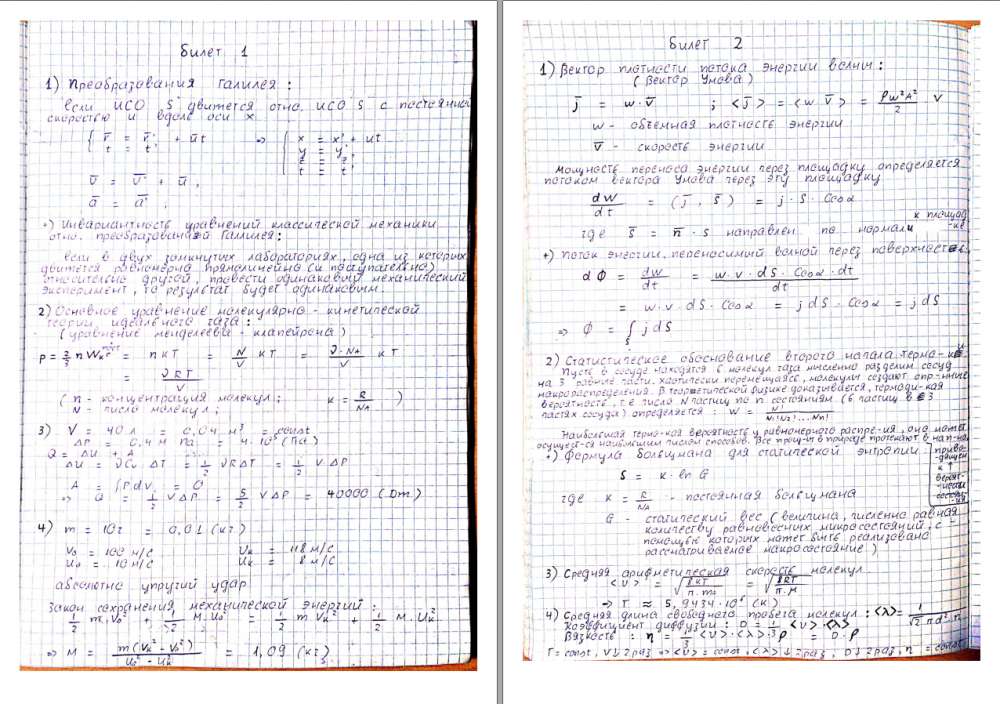 Билет 1
1) Преобразования Галилея:
если ИСО S' двитется отно. ИСО S с постоянной
скоростью и вдоль оси x
{ r̄ = r̄' + ūt ⇒ { x = x' + ut
t = t' y = y'
z = z'
t = t'
v̄ = v̄' + ū,
ā = ā'.
+) Инвариантность уравнений классической механики
отно. преобразований Галилея:
если в двух замкнутых лабораториях, одна из которых
двитется равномерно прямолинейно (и поступательно)
относительно другой, провести одинаковый механический
эксперимент, то результат будет одинаковым.
2) Основное уравнение молекулярно - кинетической
теории идеального газа:
(уравнение менделеева - клапейрона)
p = 2/3 n Wк пост = nкT = N/V кT = ν·NA/V кT
= νRT/V
(n - концентрация молекул; к = R/NA)
N - число молекул;
3) V = 40 л = 0,04 м³ = const
ΔP = 0,4 м Па = 4·10⁵ (Па)
Q = ΔU + A
ΔU = νCv ΔT = i/2 νRΔT = i/2 VΔP
A = ∫PdV = 0
⇒ Q = i/2 VΔP = 5/2 VΔP = 40000 (Dm)
4) m = 10г = 0,01 (кг)
V₀ = 100 м/с Vк = 118 м/с
U₀ = 10 м/с Uк = 8 м/с
абсолютно упругий удар
Закон сохранения механической энергии:
1/2 m.V₀² + 1/2 M.U₀² = 1/2 mVк² + 1/2 M.Uк²
⇒ M = m(Vк² - V₀²)/(U₀² - Uк²) = 1,09 (кг)
Билет 2
1) Вектор плотности потока энергии волны:
(Вектор Умова)
j̄ = w·v̄ ; <j̄> = <w v̄> = ρω²A²/2 v
w - объемная плотность энергии
v̄ - скорость энергии
Мощность переноса энергии через площадку определяется
потоком вектора Умова через эту площадку
dW/dt = (j̄, s̄) = j·S·Cosα
где s̄ = n̄·s направлен по нормали к площад-ке
+) Поток энергии, переносимый волной через поверхность:
dΦ = dW/dt = w·v·dS·Cosα·dt/dt
= w·v·dS·Cosα = jdS·Cosα = jdS
⇒ Φ = ∫ jdS
2) Статистическое обоснование второго начала термо-ки:
Пусть в сосуде находятся 6 молекул газа мысленно разделим сосуд
на 3 равные части. хаотически перемещаясь, молекулы создают опр-нные
макрораспределения. В теоретической физике доказывается, термоди-кая
вероятность, т.е число N частиц по n состояниям (6 частиц в 3
частях сосуда) определяется: W = N!/N₁!N₂!...Nn!
Наибольшая термо-кая вероятность у равномерного распре-ия, оно может
осущест-ся наибольшим числом способов. Все проц-ы в природе протекают в нап-ии,
приво-дящем к ↑ вероят-ности состоя-ия
+) Формула больцмана для статической энтропии:
S = к·ln G
где к = R/NA - постоянная больцмана
G - статический вес (величина, численно равная
количеству равновесных микросостояний, с -
помощью которых мотет быть реализовано
рассматриваемое макросостояние.)
3) Средняя арифметическая скорость молекул
<v> = √(8кT/π.m₀) = √(8RT/π.M)
⇒ T ≈ 5,9434·10⁶ (К)
4) Средняя длина свободного пробега молекул: <λ> = 1/√2 πd².n
Коэффициент диффузии: D = 1/3 <v>·<λ>
Вязкость: η = 1/3 <v>·<λ>·ρ = D·ρ
T = const, V↓2раз ⇒ <v> = const, <λ>↓2раз, D↓2раз, η = const